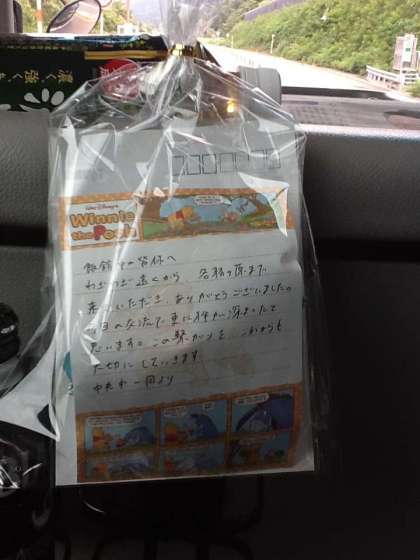 Walt Disney's
Winnie
the Pooh
中の皆様へ
わざわざ遠くから まで
来ていただき ありがとうございました。
今日の交流で更に絆が深まったと
思います。この繋がりを これからも
大切にしていきます
中央中一同より